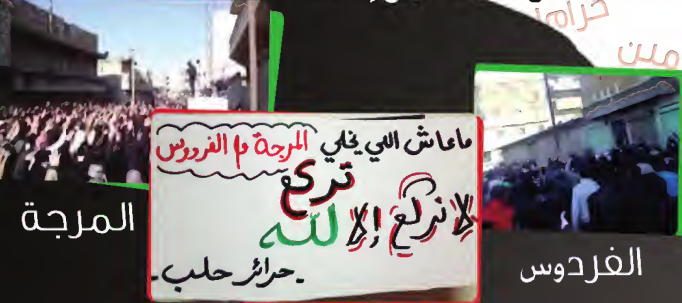 ماعاش اللي يخلي المرجة و الفردوس
تركع
لا نركع إلا لله
-حرائر حلب-
المرجة
الفردوس